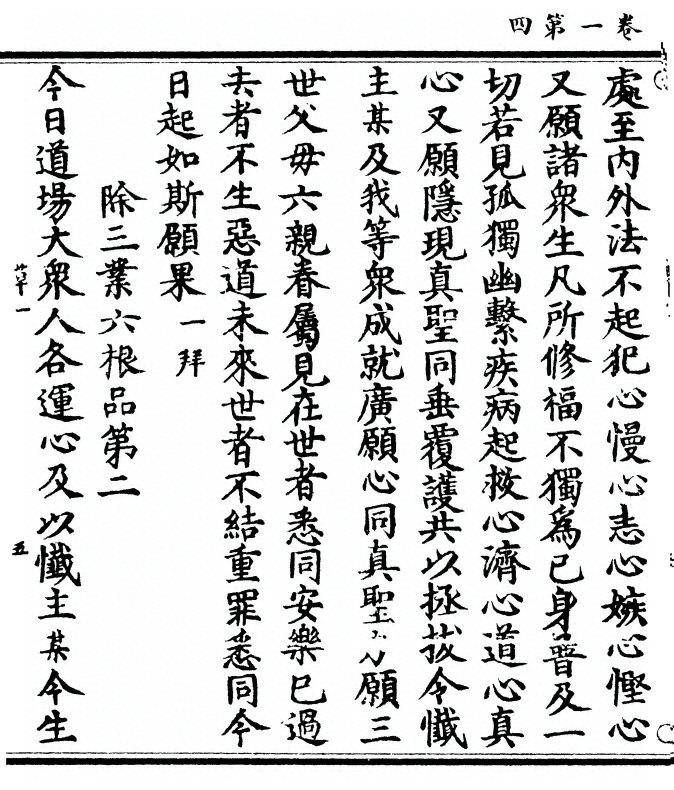 卷一第四
處至内外法不起犯心慢心恚心嫉心慳心
又願諸衆生凡所修福不獨爲已身普及一
切若見孤獨幽繫疾病起救心濟心道心真
心又願隱現真聖同垂覆護共以拯拔令懺
主某及我等衆成就廣願心同真聖願三
世父毋六親眷屬見在世者悉同安樂已過
去者不生惡道未來世者不結重罪悉同今
日起如斯願果一拜
除三業六根品第二
今日道場大衆人各運心及以懺主某今生
五